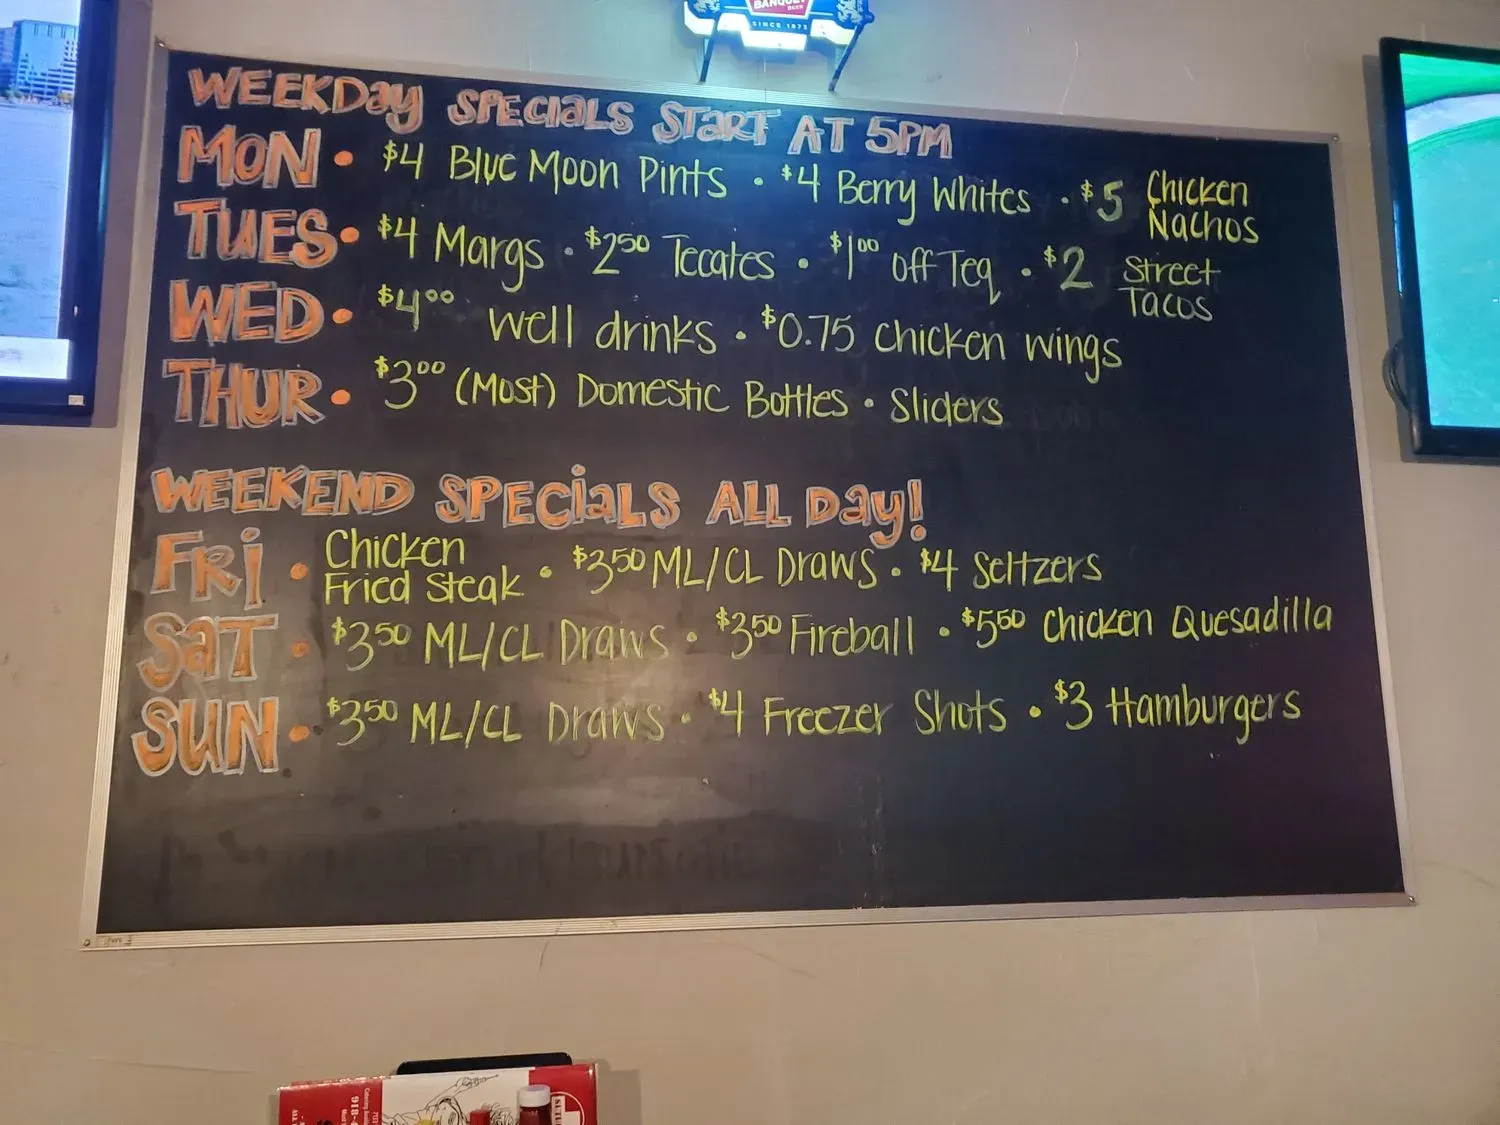 BANQUET
BEER
SINCE 1873
WEEKDay SPECiaLS START AT 5PM
MON • $4 Blue Moon Pints • $4 Berry Whites • $5 Chicken Nachos
TUES • $4 Margs • $2.50 Tecates • $1.00 off Teq • $2 Street Tacos
WED • $4.00 well drinks • $0.75 chicken wings
THUR • $3.00 (Most) Domestic Bottles • Sliders
WEEKEND SPECiaLS ALL Day!
FRi • Chicken Fried Steak • $3.50 ML/CL Draws • $4 Seltzers
SaT • $3.50 ML/CL Draws • $3.50 Fireball • $5.50 Chicken Quesadilla
SUN • $3.50 ML/CL Draws • $4 Freezer Shots • $3 Hamburgers